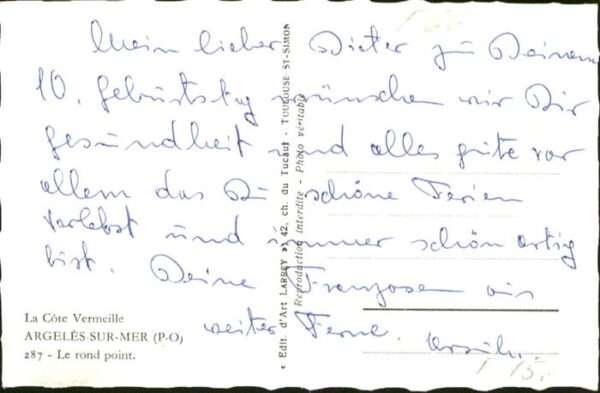 Mein lieber Dieter zu Deinem
10. Geburtstag wünschen wir Dir
Gesundheit und alles gute vor
allem das Du schöne Ferien
verlebst und immer schön artig
bist. Deine Franzosen aus
weiter Ferne.
La Côte Vermeille
ARGELÈS-SUR-MER (P-O)
287 - Le rond point.
« Edit. d'Art LARREY » 42, ch. du Tucaut - TOULOUSE ST-SIMON
Reproduction interdite - Photo véritable